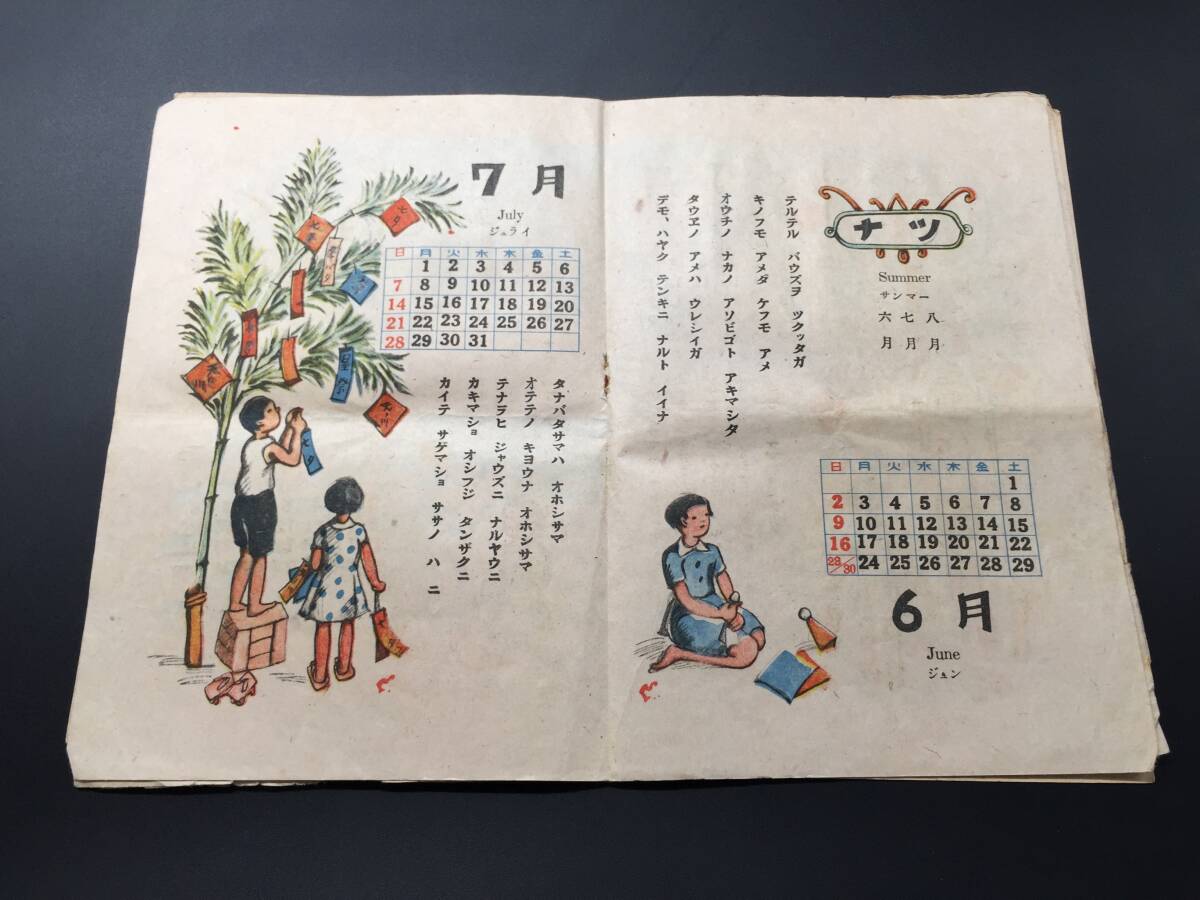 ナツ
Summer
サンマー
六七八
月月月
テルテル バウズヲ ツクッタガ
キノフモ アメダ ケフモ アメ
オウチノ ナカノ アソビゴト アキマシタ
タウヱノ アメハ ウレシイガ
デモ、ハヤク テンキニ ナルト イイナ
日 月 火 水 木 金 土
1
2 3 4 5 6 7 8
9 10 11 12 13 14 15
16 17 18 19 20 21 22
23/30 24 25 26 27 28 29
6月
June
ジュン
7月
July
ジュライ
日 月 火 水 木 金 土
1 2 3 4 5 6
7 8 9 10 11 12 13
14 15 16 17 18 19 20
21 22 23 24 25 26 27
28 29 30 31
タナバタサマハ オホシサマ
オテテノ キヨウナ オホシサマ
テナラヒ ジャウズニ ナルヤウニ
カキマショ オシフジ タンザクニ
カイテ サゲマショ ササノ ハ ニ
七夕
七夕